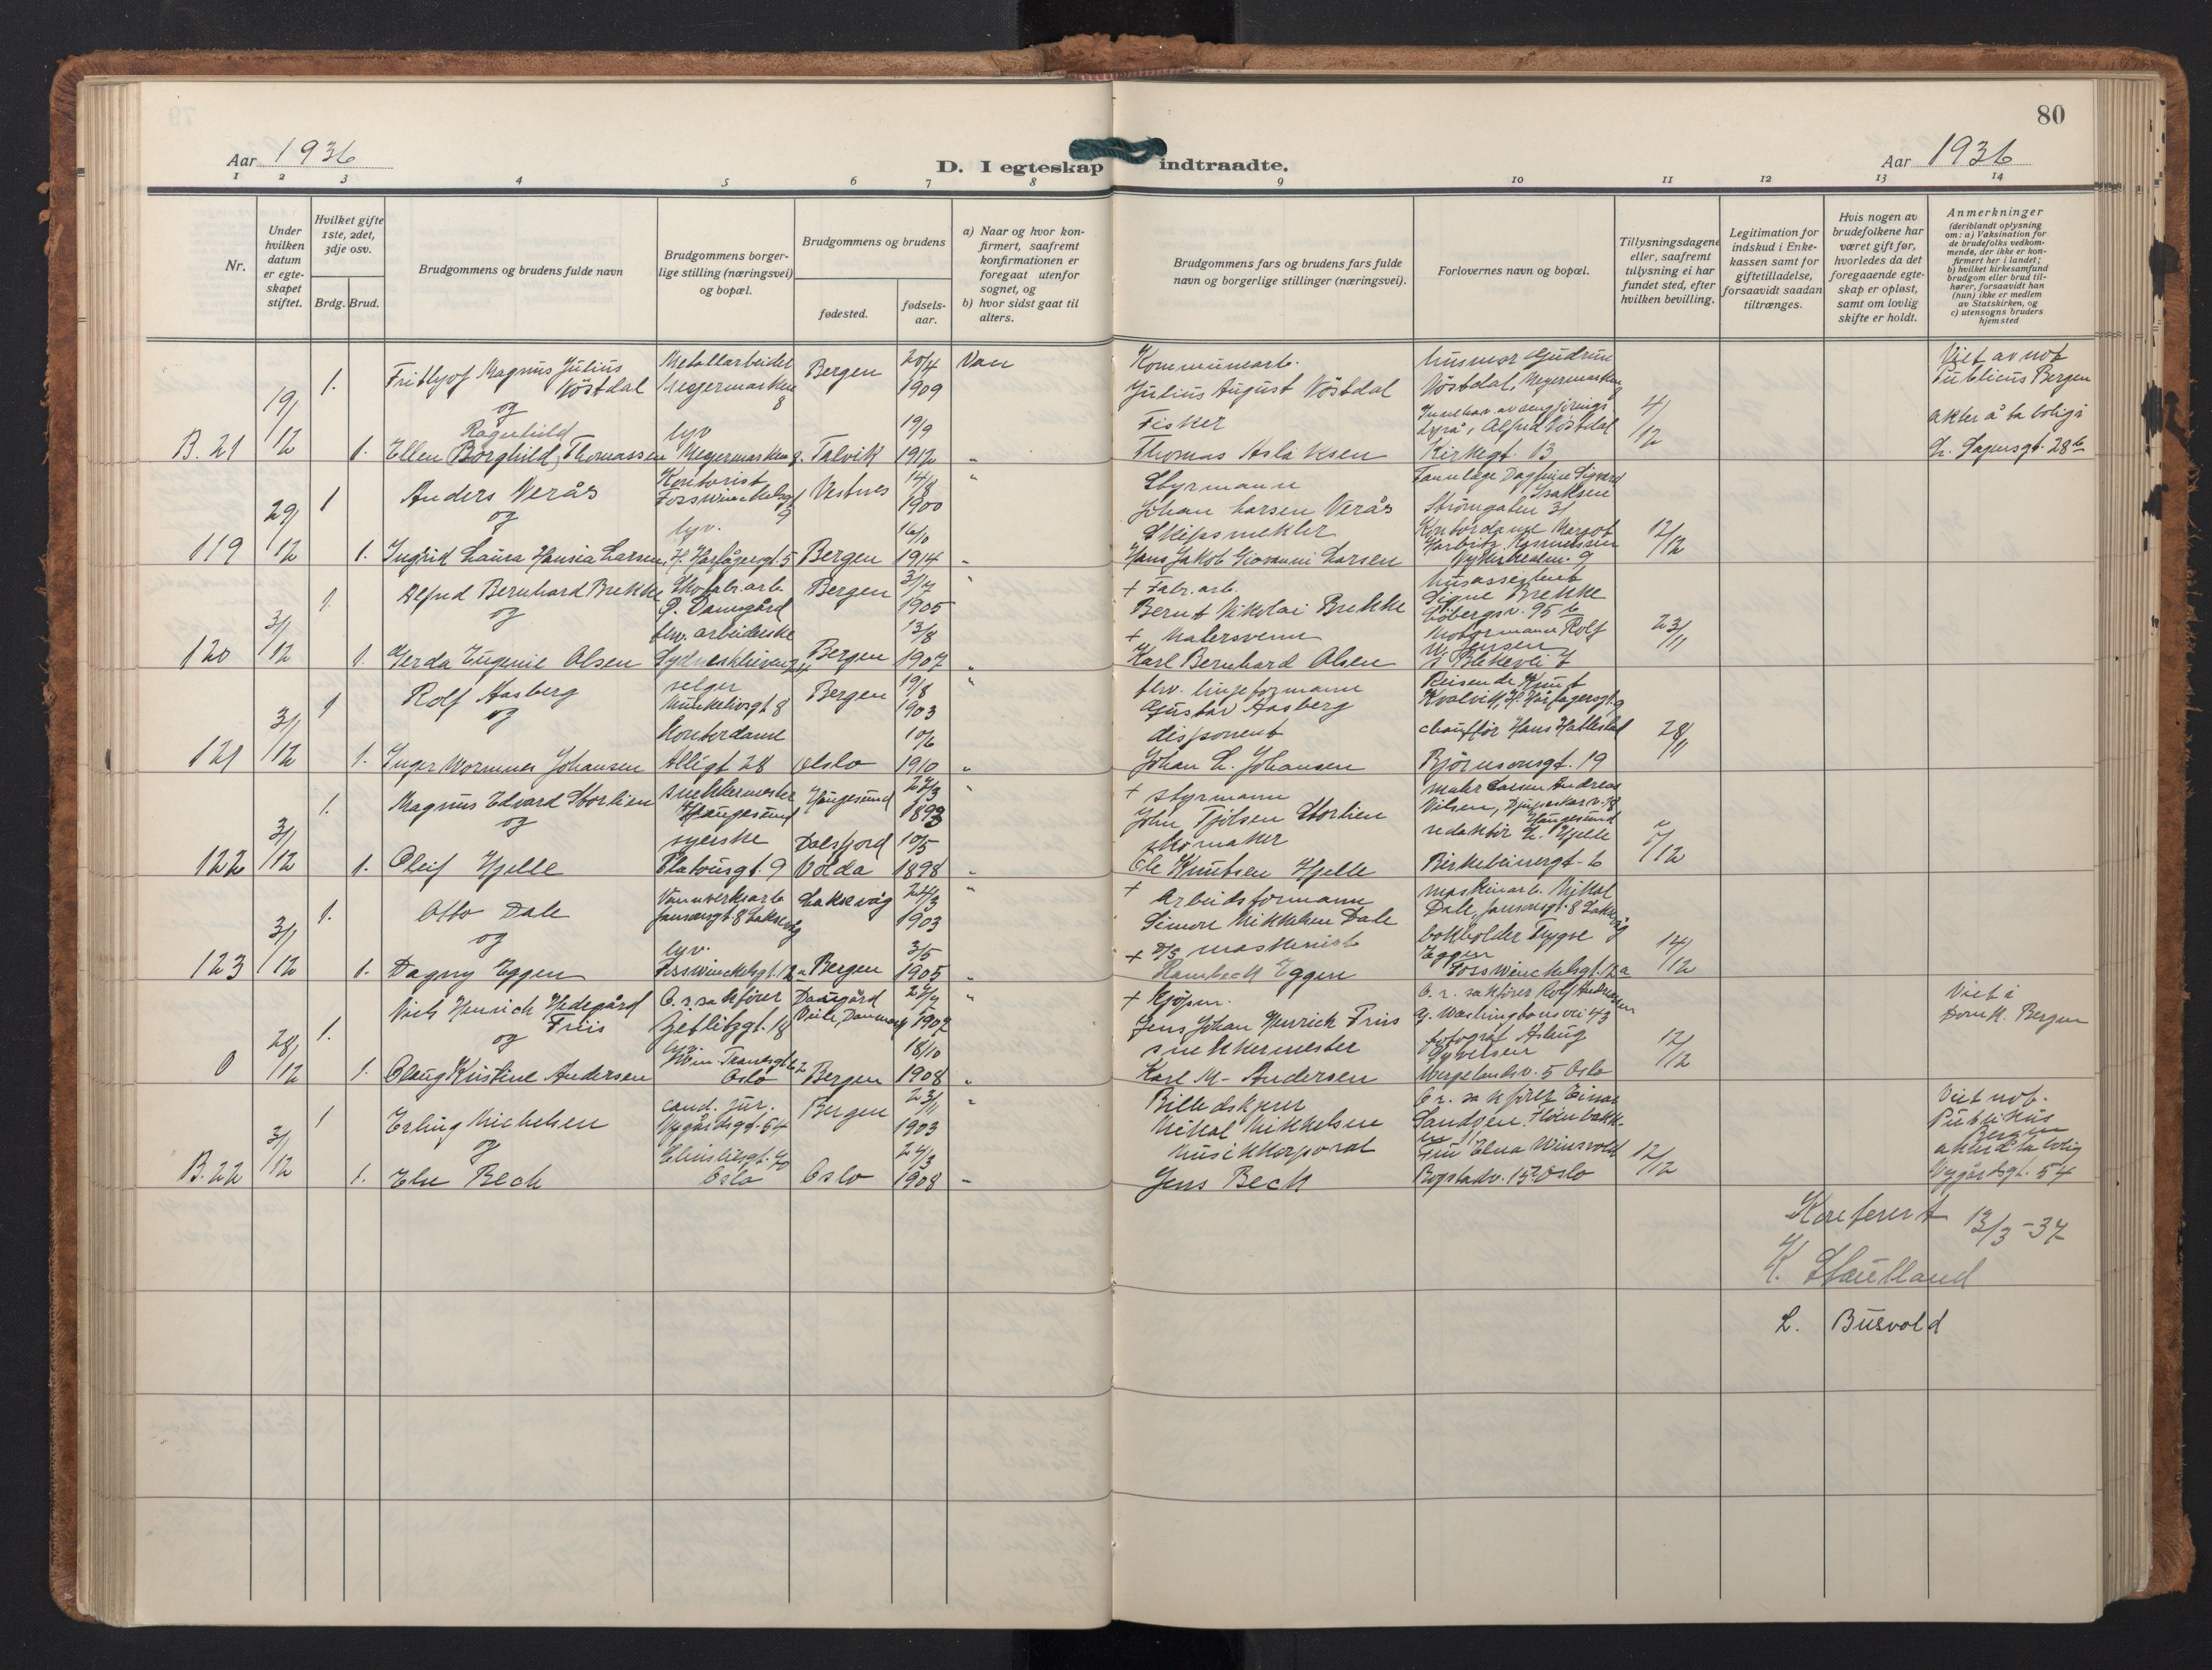 80
Aar 1936
D. I egteskap indtraadte.
Aar 1936
1 2 3 4 5 6 7 8 9 10 11 12 13 14
Nr.
Under hvilken datum er egteskapet stiftet.
Hvilket gifte 1ste, 2det, 3dje osv.
Brdg. Brud.
Brudgommens og brudens fulde navn
Brudgommens borgerlige stilling (næringsvei) og bopæl.
Brudgommens og brudens
fødested.
fødselsaar.
a) Naar og hvor konfirmert, saafremt konfirmationen er foregaat utenfor sognet, og
b) hvor sidst gaat til alters.
Brudgommens fars og brudens fars fulde navn og borgerlige stillinger (næringsvei).
Forlovernes navn og bopæl.
Tillysningsdagene eller, saafremt tillysning ei har fundet sted, efter hvilken bevilling.
Legitimation for indskud i Enkekassen samt for giftetilladelse, forsaavidt saadan tiltrænges.
Hvis nogen av brudefolkene har været gift før, hvorledes da det foregaaende egteskap er opløst, samt om lovlig skifte er holdt.
Anmerkninger (deriblandt oplysning om: a) Vaksination for de brudefolks vedkommende, der ikke er konfirmert her i landet; b) hvilket kirkesamfund brudgom eller brud tilhører, forsaavidt han (hun) ikke er medlem av Statskirken, og c) utensogns bruders hjemsted
B. 21 19/12 1. Fridtjof Magnus Julius Vöstdal Metallarbeider Meyermarken 8 Bergen 20/4 1909 Van Kommunearb. Julius August Vöstdal husmor Gudrun Vöstdal, Meyermarken Viet av not. Publicus Bergen
og
1. Ragnhild Ellen Borghild Thomassen tyv Meyermarken 8. Talvik 19/9 1912 " Fisker Thomas Aslaksen Alfred Vöstdal Kirkegt. 13 4/12 akter å ta bolig i L. Sagensgt. 28b
119 29/12 1 Anders Verås Kontorist Fosswinckelsgt 9 Vestnes 14/8 1900 " Styrmann Johan Larsen Verås Tannlæge Dagfinn Sigvard Isaksen Strömgaten 31
og
1. Ingrid Laura Hansia Larsen tyv. H. Hårfagersgt. 5 Bergen 16/10 1914 " Skipsmekler Hans Jakob Giovanni Larsen Kontordame Margot Harbitz Rasmussen 9 12/12
120 31/12 1. Alfred Bernhard Brekke Skofabr.arb. P. Damsgård Bergen 31/7 1905 " + Fabr. arb. Bernt Nikolai Brekke husassistent Signe Brekke Löbergsv. 95b
og
1. Gerda Eugenie Olsen fhv. arbeiderske Sydneskleven 24 Bergen 13/8 1907 " + Malersvenn Karl Bernhard Olsen Motormann Rolf M. Jensen S. Blekevei 7 23/11
121 31/12 1 Rolf Aasberg selger Munkelivsgt 8 Bergen 19/8 1903 " fhv. linjeformann Gustav Aasberg Reisende Knut Kvalvik, H. Hårfagersgt. 9
og
1. Inger Mormnes Johansen Kontordame Allegt 28 Oslo 10/6 1910 " disponent Johan L. Johansen chauffør Hans Hatlestad Bjørnsonsgt. 19 28/11
122 31/12 1. Magnus Edvard Storlien snekkermester Haugesund Haugesund 22/3 1893 " + Styrmann John Tjölsen Storlien maler Larsen Andreas Nilsen, Haugesund
og
1. Oleif Hjelle syerske Platousgt. 9 Dalsfjord Volda 10/5 1898 " skomaker Ole Knutsen Hjelle redaktör L. Hjelle Birkebeinergt. 6 5/12
123 31/12 1. Otto Dale Vannverksarb Jansonsgt 8 Laksevåg Laksevåg 24/3 1903 " + Arbeidsformann Simon Mikkelsen Dale maskinarb. Mikal Dale, Jansonsgt. 8 Laksevåg
og
1. Dagny Eggen tyv. Fosswinckelsgt. 12a Bergen 3/5 1905 " + D/S maskinist Hambech Eggen bokholder Trygve Eggen Fosswinckelsgt. 12a 14/12
0 28/12 1. Niels Henrich Hedegård Friis O.r.sakförer Zetlitzgt. 18 Daugård Veile, Danmark 27/7 1907 " + Kjöpm. Jens Johan Henrich Friis O.r. sakförer Rolf Andresen G. Washingtons vei 43 Viet i Domk. Bergen
og
1. Olaug Kristine Andersen tyv. Tranesgt 62 Oslo Bergen 18/10 1908 " snekkermester Karl M. Andersen fotograf Aslaug Syvertsen Wergelandsv. 5 Oslo 12/12
B. 22 31/12 1 Erling Michelsen cand. jur. Nygårdsgt. 54 Bergen 23/11 1903 " Billedskjerer Mikal Mikkelsen O.r. sakförer Einar Sandven, Viet not. Publikus Bergen
og
1. Else Bech Oslo Oslo 24/3 1908 " Musikkorporal Jens Bech Fru Elna Winsvold Bogstadv. 15 Oslo 12/12 akter å ta bolig Nygårdsgt. 54
Konferert 13/3-37
K. Stautland
L. Busvold